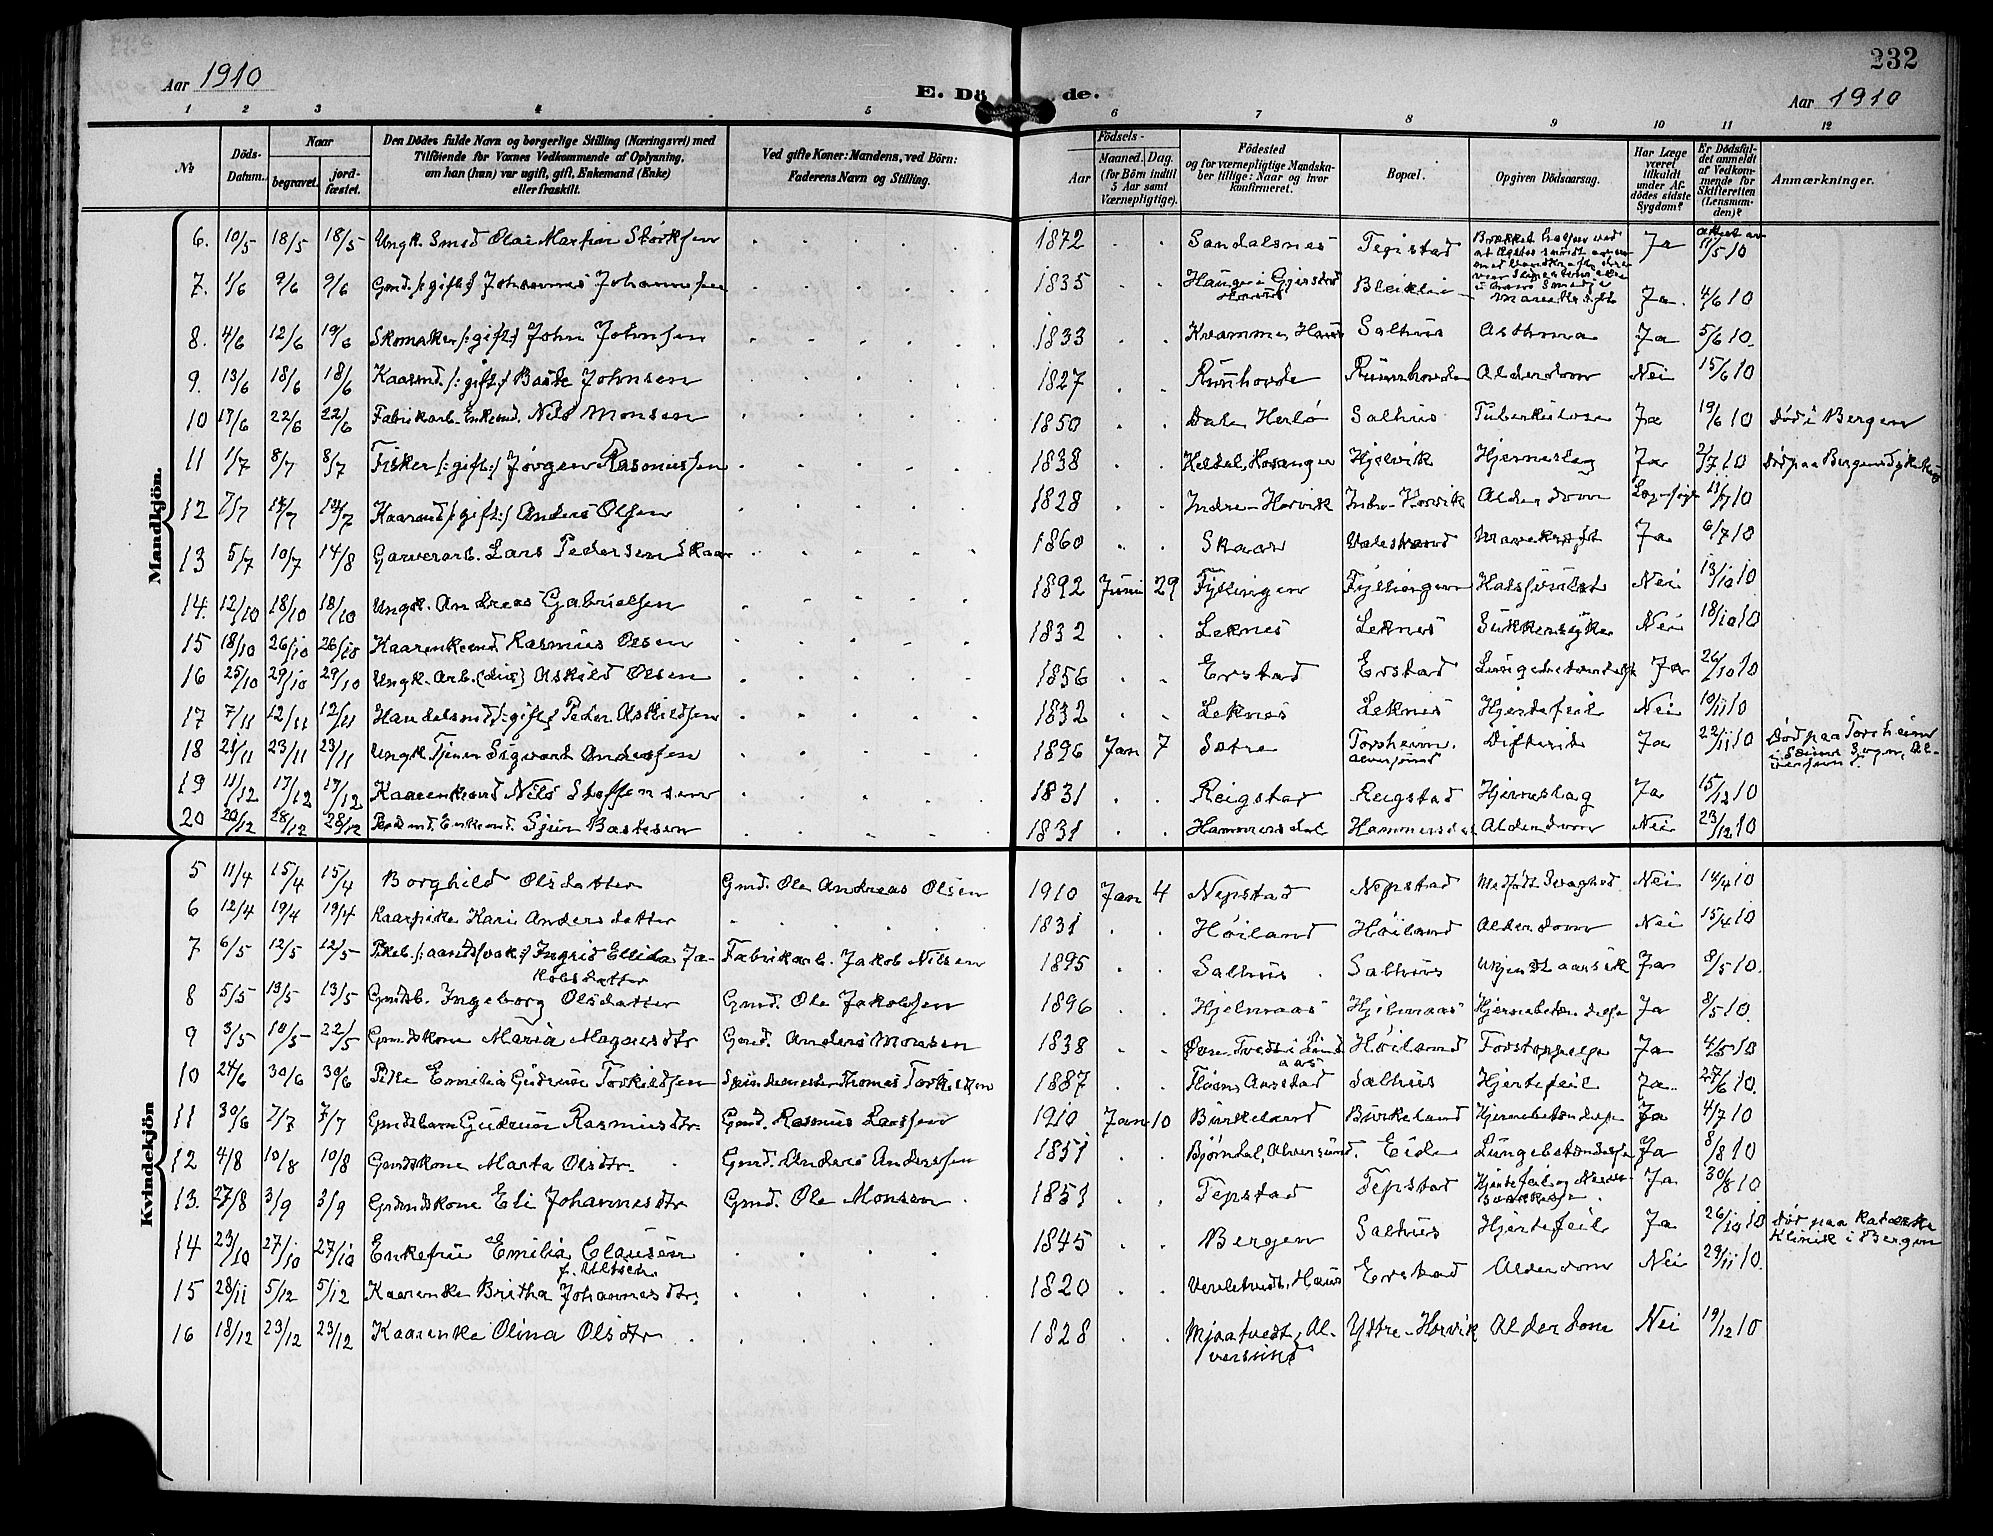 232
Aar 1910
E. Dö de.
Aar 1910
1 2 3 4 5 6 7 8 9 10 11 12
No
Döds-Datum.
Naar
begravet.
jord-fæstet.
Den Dödes fulde Navn og borgerlige Stilling (Næringsvei) med
Tilföiende for Voxnes Vedkommende af Oplysning,
om han (hun) var ugift, gift, Enkemand (Enke)
eller fraskilt.
Ved gifte Koner: Mandens, ved Börn:
Faderens Navn og Stilling.
Födsels-
Aar
Maaned. Dag.
(for Börn indtil
5 Aar samt
Værnepligtige).
Födested
og for værnepligtige Mandska-
ber tillige: Naar og hvor
konfirmeret.
Bopæl.
Opgiven Dödsaarsag.
Har Læge
været
tilkaldt
under Af-
dödes sidste
Sygdom?
Er Dödsfal-
det anmeldt
af Vedkom-
mende for
Skifteretten
(Lensman-
den)?
Anmærkninger.
Mandkjön.
6. 10/5 18/5 18/5 Ungk. Smed Olai Martin Storksen 1872 Sandalsnes Tepstad Brækket halsen ved Ja 11/5 10
7. 1/6 9/6 9/6 Gmd. /:gift:/ Johannes Johannessen 1835 Hauge i Gjerstad Haus Bleiklie Mavekræft Ja. 4/6 10
8. 4/6 12/6 19/6 Skomaker /:gift:/ John Johnsen 1833 Kvamme, Haus Salhus Asthma Ja 5/6 10.
9. 13/6 18/6 18/6 Kaarmd. /:gift:/ Baste Johnsen 1827 Runhovde Runnhovde Alderdom Nei 15/6 10
10 17/6 22/6 22/6 Fabrikarb. Enkemd. Nils Monsen 1850 Dale, Herlö Salhus Tuberkulose Ja 19/6 10 Död i Bergen
11 1/7 8/7 8/7 Fisker /:gift:/ Jörgen Rasmussen 1838 Heldal, Hosanger Hjelvik Hjerneslag Ja 2/7 10 Död paa Bergens Sykehus
12 7/7 14/7 14/7 Kaarmd /:gift:/ Anders Olsen 1828 Indre-Horvik Indre-Horvik Alderdom 13/7 10
13 5/7 10/7 14/8 Garverarb. Lars Pedersen Skaar 1860 Skaar Valestrand Mavekræft Ja 6/7 10
14. 12/10 18/10 18/10 Ungk. Andreas Gabrielsen 1892 Juni 29 Fyllingen Fyllingen Nei 13/10 10
15 18/10 26/10 26/10 Kaarenkemd Rasmus Olsen 1832 Leknes Leknes Sukkersyke Nei 18/10 10
16 25/10 29/10 29/10 Ungk. Arb. Askild Olsen 1856 Erstad Erstad Lungebetændelse Ja 26/10 10
17 7/11 12/11 12/11 Handelsmd /:gift:/ Peder Askildsen 1832 Leknes Leknes Hjertefeil Nei 10/11 10
18 21/11 23/11 23/11 Ungk. Tjener Sigvart Andersen 1896 Jan 7 Sætre Torsheim. Alversund Difterit Ja 22/11 10 Död paa Torsheim
19 11/12 17/12 17/12 Kaarenkemd Nils Steffensen 1831 Reigstad Reigstad Hjerneslag Ja 15/12 10
20 20/12 28/12 28/12 Enkemd. Sjur Bastesen 1831 Hammersdal Hammersdal Alderdom Nei 23/12 10
Kvindekjön
5 11/4 15/4 15/4 Borghild Olsdatter Gmd. Ole Andreas Olsen 1910 Jan 4 Nepstad Nepstad Medfödt Svaghed Nei 14/4 10
6 12/4 19/4 19/4 Kaarpike Kari Andersdatter 1831 Höiland Höiland Alderdom Nei 15/4 10
7 6/5 12/5 12/5 Pikeb. /:aandssvak:/ Ingrid Ellida Ja-
kobsdatter Fabrikarb. Jakob Nilsen 1895 Salhus Salhus Ukjendt aarsak Ja 8/5 10.
8 5/5 13/5 13/5 Gmdsb. Ingeborg Olsdatter Gmd. Ole Jakobsen 1896 Hjelmaas Hjelmaas Hjernebetændelse Ja 8/5 10.
9 3/5 10/5 22/5 Gmdskone Maria Magnesdtr Gmd. Anders Monsen 1838 Övre Tvedt i Lindaas Höiland Forstoppelse Ja 4/5 10
10 24/6 30/6 30/6 Pike Emilia Gudrun Torkildsen Spindemester Thomas Torkildsen 1887 Aarstad Salhus Hjertefeil Ja. 27/6 10.
11 30/6 7/7 7/7 Gmdsbarn Gudrun Rasmusdtr. Gmd. Rasmus Larssen 1910 Jan 10 Birkeland Birkeland Hjernebetændelse Ja 4/7 10
12 4/8 10/8 10/8 Gmdskone Marta Olsdtr. Gmd. Anders Anderssen 1851 Björndal, Alversund. Eide Lungebetændelse Ja 8/8 10
13. 27/8 3/9 3/9 Gmdskone Eli Johannesdtr Gmd. Ole Monsen 1851 Tepstad Tepstad Hjertefeil og Nerve- Ja 30/8 10
14 23/10 27/10 27/10 Enkefru Emilia Clausen
f. Ultsch. 1845 Bergen Salhus Hjertefeil Ja 26/10 10 Död paa
Klinik i Bergen
15 28/11 5/12 5/12 Kaarenke Britha Johannesdtr. 1820 Haus Erstad Alderdom Nei 29/11 10.
16 18/12 23/12 23/12 Kaarenke Olina Olsdtr 1828 Mjaatvedt, Al-
versund Ytre-Horvik Alderdom Nei 19/12 10